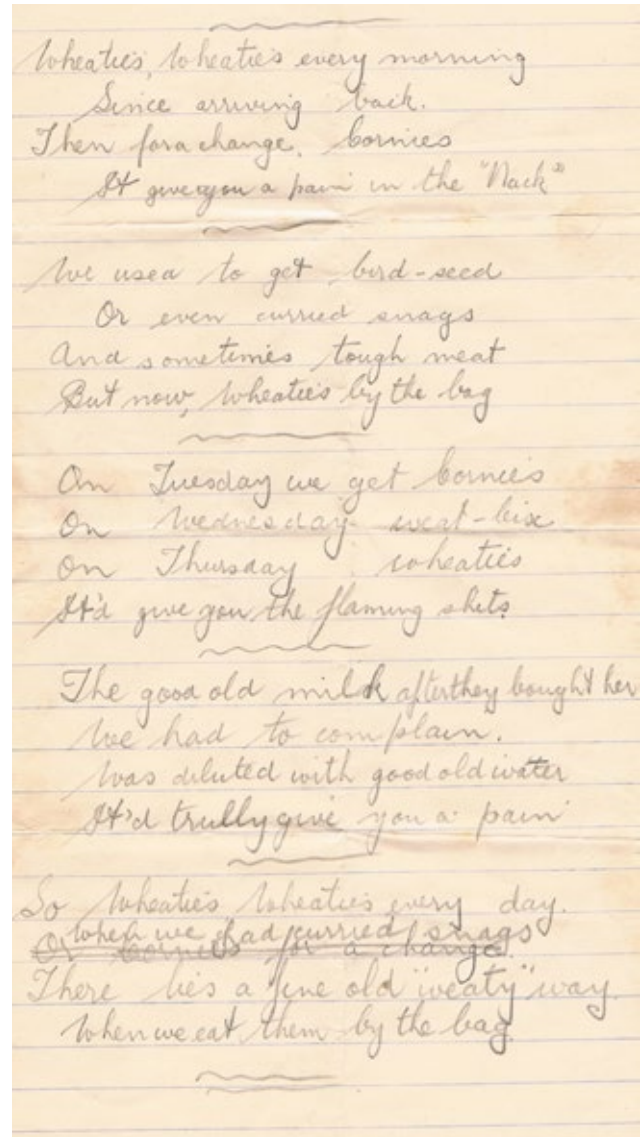 Wheaties, Wheaties every morning
Since arriving back.
Then for a change, Cornies
It gives you a pain in the "Nack"
We used to get bird-seed
Or even curried snags
And sometimes tough meat
But now, Wheaties by the bag
On Tuesday we get Cornies
On Wednesday weat-bix
On Thursday wheaties
It'd give you the flaming shits
The good old milk after they bought her
We had to complain.
Was diluted with good old water
It'd trully give you a pain
So Wheaties Wheaties every day.
When we had curried snags
Or Cornies for a change.
There lies a fine old "weaty" way.
When we eat them by the bag